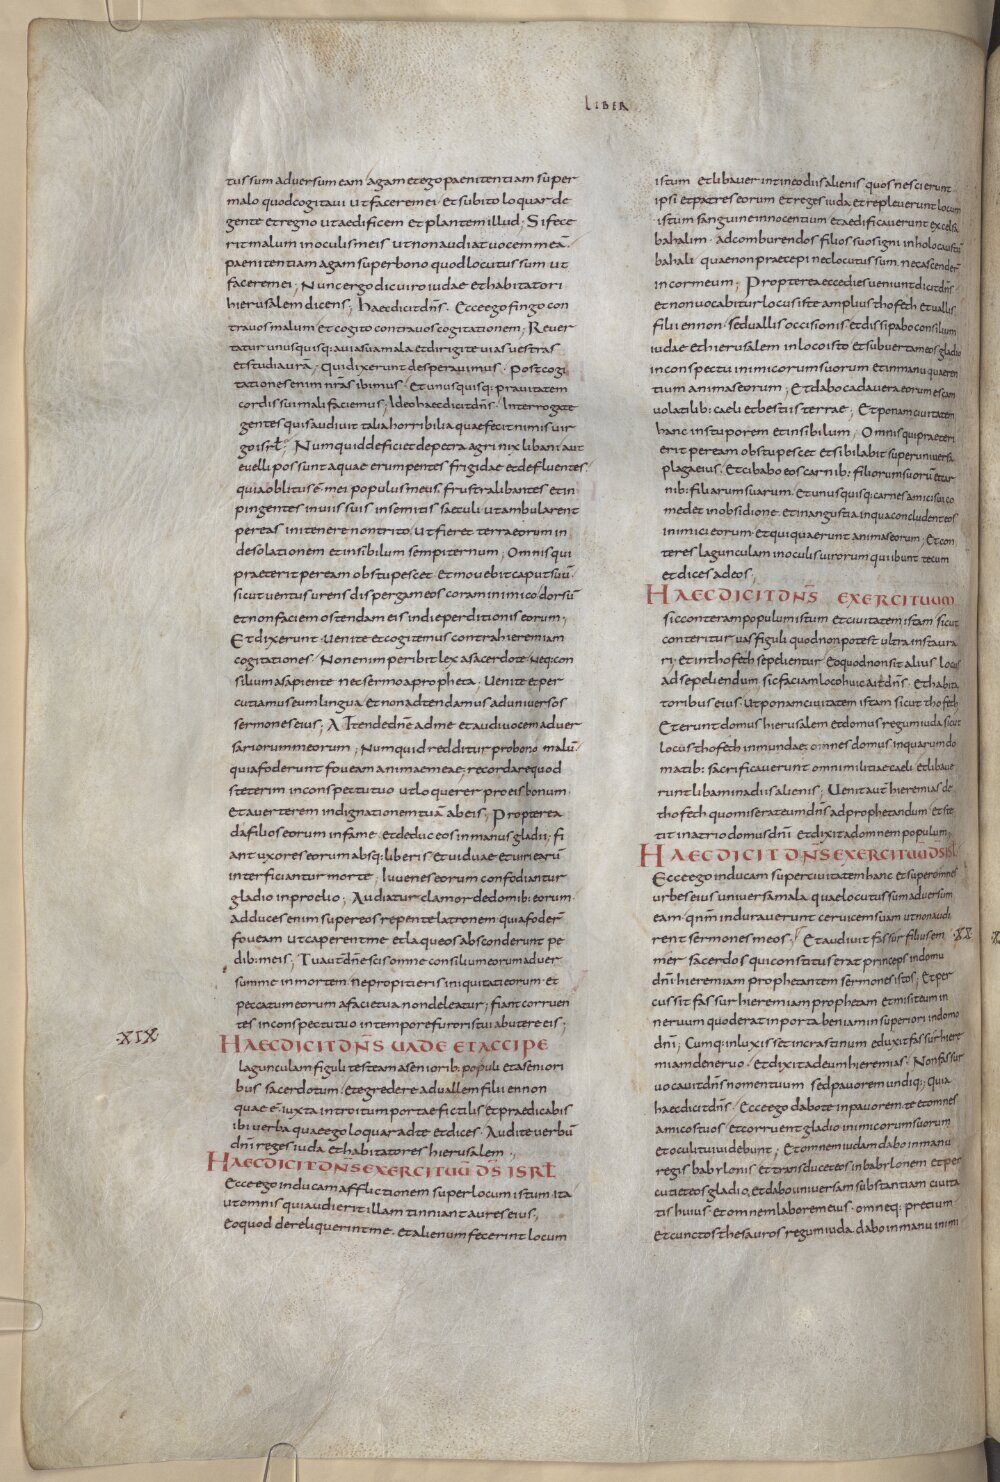 LIBER
tus sum adversum eam agam et ego paenitentiam super
malo quod cogitavi ut facerem ei · et subito loquar de
gente et regno ut aedificem et plantem illud ; Si fece
rit malum in oculis meis ut non audiat vocem meā ·
paenitentiam agam super bono quod locutus sum ut
facerem ei ; Nunc ergo dic viro iudae et habitatori
hierusalem dicens ; haec dicit dn̄s · Ecce ego fingo con
tra vos malum et cogito contra vos cogitationem ; Rever
tatur unusquisq: a via sua mala et dirigite vias vestras
et studia vr̄a ; Qui dixerunt desperavimus · Post cogi
tationes enim nr̄as ibimus · Et unusquisq: pravitatem
cordis sui mali faciemus ; Ideo haec dicit dn̄s · Interrogate
gentes quis audivit talia horribilia quae fecit nimis vir
go isrl̄ · Numquid deficiet de petra agri nix libani aut
evelli possunt aquae erumpentes frigidae et defluentes ·
quia oblitus ē mei populus meus frustra libantes et in
pingentes in viis suis in semitis saeculi ut ambularent
per eas in itenere non trito · Ut fieret terra eorum in
desolationem et in sibilum sempiternum ; Omnis qui
praeterit per eam obstupescet et movebit caput suū ·
sicut ventus urens dispergam eos coram inimico · dorsū
et non faciem ostendam eis in die perditionis eorum ;
Et dixerunt · Venite et cogitemus contra hieremiam
cogitationes · Non enim peribit lex a sacerdote · Neq: con
silium a sapiente nec sermo a propheta · Venite et per
cutiamus eum lingua et non adtendamus ad universos
sermones eius ; Attende dn̄e ad me et audi vocem adver
sariorum meorum ; Numquid redditur pro bono malū
quia foderunt foveam animae meae ; recordare quod
steterim in conspectu tuo ut loquerer pro eis bonum ·
et averterem indignationem tuā ab eis ; Propterea
da filios eorum in fame · et deduc eos in manus gladii ; fi
ant uxores eorum absq: liberis et viduae et viri earū
interficiantur morte ; Iuvenes eorum confodiantur
gladio in proelio ; Audiatur clamor de domib: eorum ·
Adduces enim super eos repente latronem quia foder̄
foveam ut caperent me et laqueos absconderunt pe
dib: meis ; Tu aut̄ dn̄e scis omne consilium eorum adver
sum me in mortem · ne propitieris iniquitati eorum · et
peccatum eorum a facie tua non deleatur ; fiant corruen
tes in conspectu tuo in tempore furoris tui abutere eis ;
·XIX·
HAEC DICIT DN̄S VADE ET ACCIPE
lagunculam figuli testeam a seniorib: populi et a seniori
bus sacerdotum · et egredere ad vallem filii ennon
quae ē iuxta introitum portae fictilis et praedicabis
ibi verba quae ego loquar ad te et dices · Audite verbū
dn̄i reges iuda et habitatores hierusalem ;
HAEC DICIT DN̄S EXERCITUŪ DS̄ ISRL̄
Ecce ego inducam afflictionem super locum istum ita
ut omnis qui audierit illam tinniant aures eius ;
eo quod dereliquerint me · et alienum fecerint locum
istum et libaver̄ in eo diis alienis quos nescierunt
ipsi et patres eorum et reges iuda et repleverunt locum
istum sanguine innocentium et aedificaverunt excelsa
bahalim · ad comburendos filios suos igni in holocaustū
bahali · quae non praetepi nec locutus sum · nec ascender̄
in cor meum ; Propterea ecce dies veniunt dicit dn̄s ·
et non vocabitur locus iste amplius thofeth et vallis
filii ennon · sed vallis occisionis et dissipabo consilium
iudae et hierusalem in loco isto et subvertam eos gladio
in conspectu inimicorum suorum et in manu quaeren
tium animas eorum ; Et dabo cadavera eorum escam
volatilib: caeli et bestiis terrae ; Et ponam civitatem
hanc in stuporem et in sibilum ; Omnis qui praeteri
erit per eam obstupescet et sibilabit super universa
plaga eius · Et cibabo eos carnib: filiorum suorū et car
nib: filiarum suarum · Et unusquisq: carnes amici sui co
medet in obsidione · et in angustia in qua concludent eos
inimici eorum · et qui quaerunt animas eorum ; Et con
teres lagunculam in oculis virorum qui ibunt tecum
et dices ad eos ;
HAEC DICIT DN̄S EXERCITUUM
sic conteram populum istum et civitatem istam sicut
conteritur vas figuli quod non potest ultra instaura
ri · et in thofeth sepelientur eo quod non sit alius locus
ad sepeliendum · sic faciam loco huic ait dn̄s · et habita
toribus eius · Ut ponam civitatem istam sicut thofeth
Et erunt domus hierusalem et domus regum iuda sicut
locus thofeth inmundae ; omnes domus in quarum do
matib: sacrificaverunt omni militiae caeli et libave
runt libamina diis alienis ; Venit aut̄ hieremias de
thofeth quo miserat eum dn̄s ad prophetandum · et ste
tit in atrio domus dn̄i et dixit ad omnem populum ;
HAEC DICIT DN̄S EXERCITUŪ DS̄ ISL̄
Ecce ego inducam super civitatem hanc et super omnes
urbes eius universa mala quae locutus sum adversum
eam · qn̄m induraverunt cervicem suam ut non audi
rent sermones meos ; Et audivit fassur filius em
·XX·
mer sacerdos qui constitus erat princeps in domu
dn̄i hieremiam prophetantem sermones istos ; Et per
cussit fassur hieremiam prophetam et misit eum in
nervum quod erat in porta beniamin superiori in domo
dn̄i ; Cumq: inluxisset in crastinum eduxit fassur hiere
miam de nervo · Et dixit ad eum hieremias · Non fassur
vocavit dn̄s nomen tuum sed pavorem undiq: ; Quia
haec dicit dn̄s · Ecce ego dabo te in pavorem · te et omnes
amicos tuos et corruent gladio inimicorum suorum
et oculi tui videbunt ; Et omnem iudam dabo in manu
regis babylonis et transducet eos in babylonem et per
cutiet eos gladio, et dabo universam substantiam civita
tis huius · et omnem laborem eius · omneq: pretium
et cunctos thesauros regum iuda · dabo in manu inimi